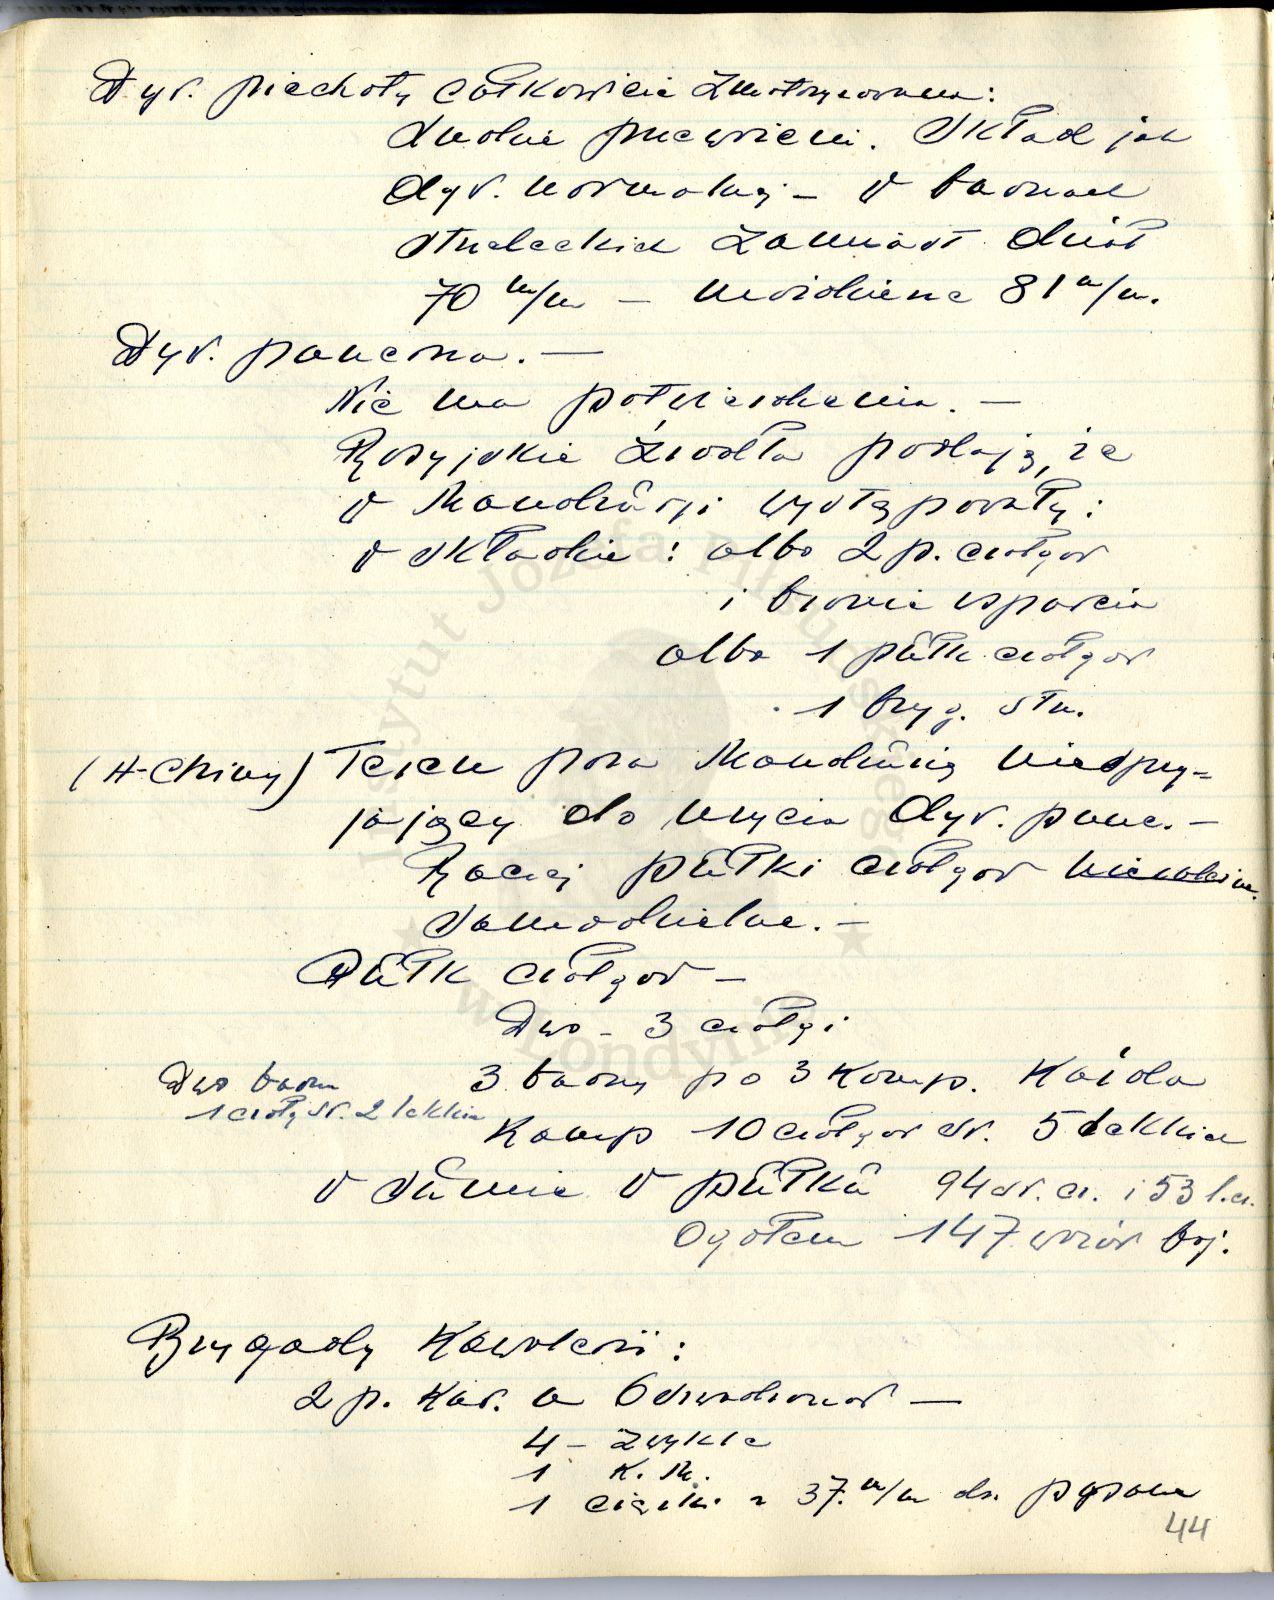 Dyw. piechoty całkowicie zmotoryzowana:
Trudnie przewozem. Skład jak
dyw. normalnej – w baonach
strzeleckich zamiast dział
70 m/m – moździerze 81 m/m.
Dyw. pancerna. –
Nie ma potwierdzenia. –
Rosyjskie źródła podają, że
w Mandżurji występowały:
w składzie: albo 2 p. czołgów
i bronie wsparcia
albo 1 pułk czołgów
1 bryg. strz.
(H-Chiny) Teren poza Mandżurią niesprzy-
jający do użycia dyw. panc. –
Raczej pułki czołgów
samodzielne. –
Pułk czołgów –
Dwo – 3 czołgi
3 baony po 3 komp. Każda
Dwo baonu
1 czołg śr. 2 lekkie
Komp 10 czołgów śr. 5 lekkich
w sumie w pułku 94 śr. cz. i 53 l. cz.
Ogółem 147 wozów boj.
Brygady Kawalerii:
2 p. kaw. a 6 szwadronów –
4 – zwykłe
1 K. M.
1 ciężki z 37 m/m dz. ppanc
44
Instytut Józefa Piłsudskiego
w Londynie